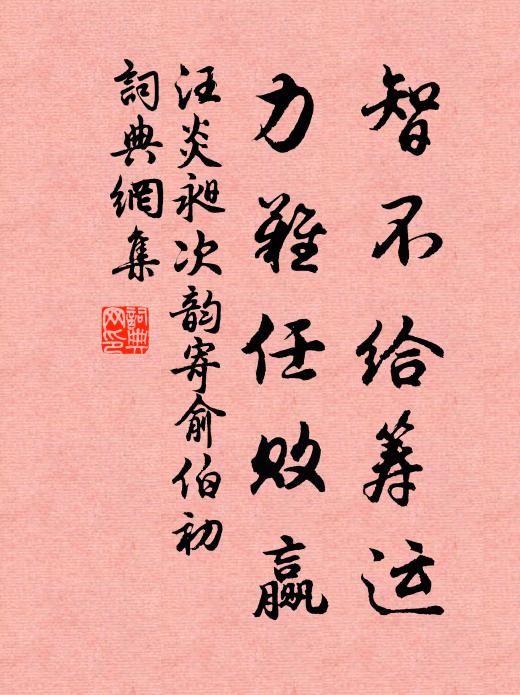 智不给筹运
力難任败赢
汪炎昶次韵寄俞伯初
詞典網集
詞典网印